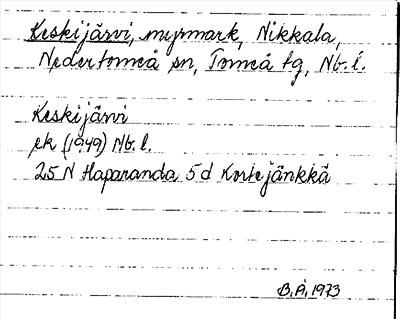 Keskijärvi, myrmark, Nikkala,
Nedertorneå sn, Torneå tg, Nb. l.
Keskijärvi
ek (1949) Nb. l.
25 N Haparanda 5 d Kortejänkkä
B.Å. 1973